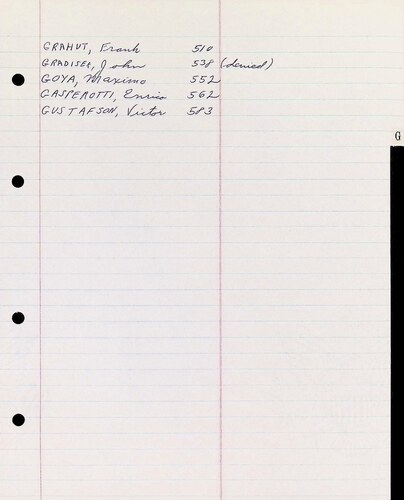 GRAHUT, Frank 510
GRADISER, John 538 (denied)
GOYA, Maximo 552
GASPEROTTI, Enrico 562
GUSTAFSON, Victor 583
G